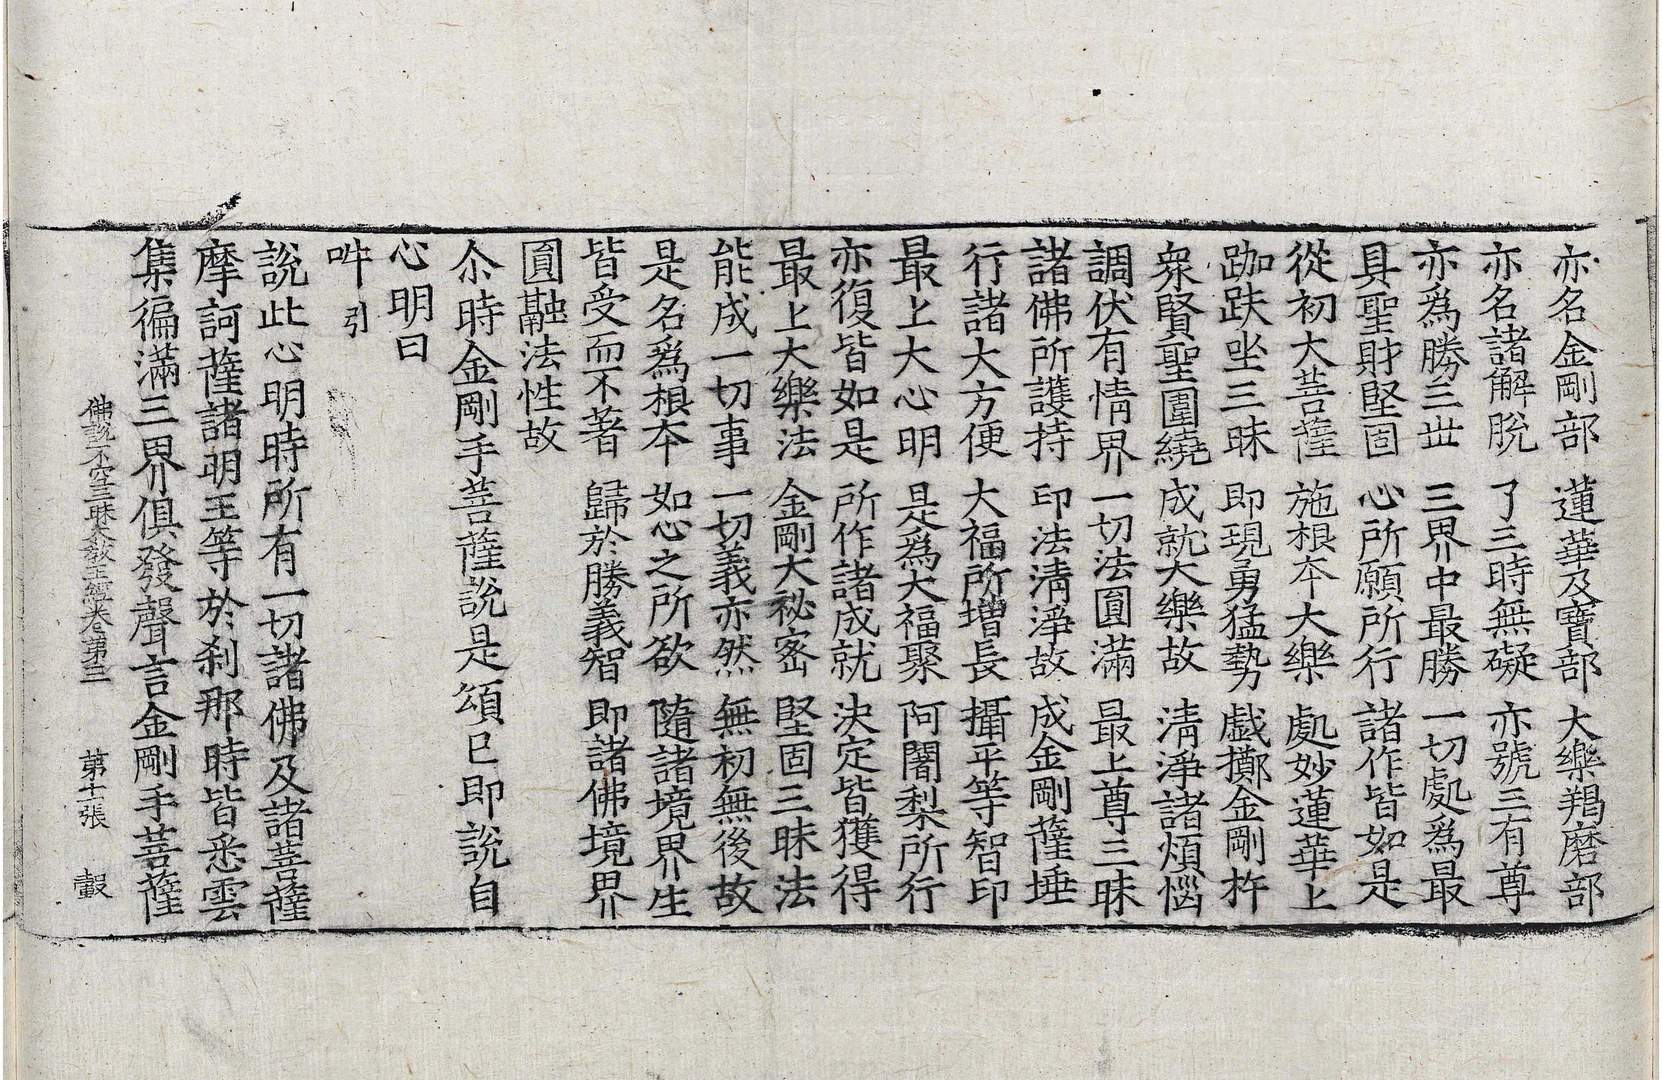 亦名金剛部　蓮華及寶部　大樂羯磨部
亦名諸解脫　了三時無礙　亦號三有尊
亦爲勝三世　三界中最勝　一切處爲最
具聖財堅固　心所願所行　諸作皆如是
從初大菩薩　施根本大樂　處妙蓮華上
跏趺坐三昧　即現勇猛勢　戲擲金剛杵
衆賢聖圍繞　成就大樂故　清淨諸煩惱
調伏有情界　一切法圓滿　最上尊三昧
諸佛所護持　印法清淨故　成金剛薩埵
行諸大方便　大福所增長　攝平等智印
最上大心明　是爲大福聚　阿闍梨所行
亦復皆如是　所作諸成就　決定皆獲得
最上大樂法　金剛大祕密　堅固三昧法
能成一切事　一切義亦然　無初無後故
是名爲根本　如心之所欲　隨諸境界生
皆受而不著　歸於勝義智　即諸佛境界
圓融法性故
尒時金剛手菩薩說是頌已即說自
心明曰
吽引
說此心明時所有一切諸佛及諸菩薩
摩訶薩諸明王等於刹那時皆悉雲
集徧滿三界俱發聲言金剛手菩薩
佛說不空三昧大教王經卷第三　第十一張　轂